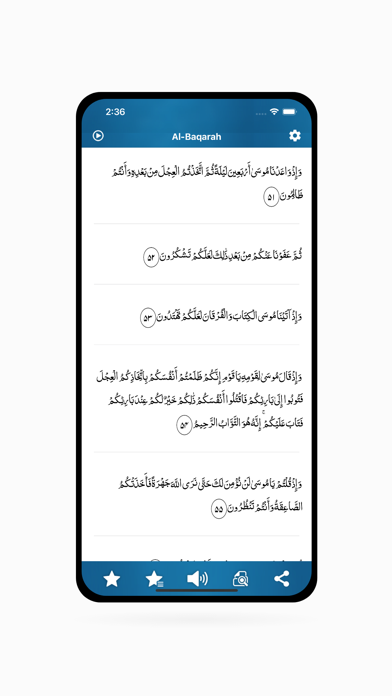 2:36
Al-Baqarah
وَإِذْ وَاعَدْنَا مُوسَىٰ أَرْبَعِينَ لَيْلَةً ثُمَّ اتَّخَذْتُمُ الْعِجْلَ مِنْ بَعْدِهِ وَأَنْتُمْ
ظَالِمُونَ ٥١
ثُمَّ عَفَوْنَا عَنْكُمْ مِنْ بَعْدِ ذَٰلِكَ لَعَلَّكُمْ تَشْكُرُونَ ٥٢
وَإِذْ آتَيْنَا مُوسَى الْكِتَابَ وَالْفُرْقَانَ لَعَلَّكُمْ تَهْتَدُونَ ٥٣
وَإِذْ قَالَ مُوسَىٰ لِقَوْمِهِ يَا قَوْمِ إِنَّكُمْ ظَلَمْتُمْ أَنْفُسَكُمْ بِاتِّخَاذِكُمُ الْعِجْلَ
فَتُوبُوا إِلَىٰ بَارِئِكُمْ فَاقْتُلُوا أَنْفُسَكُمْ ذَٰلِكُمْ خَيْرٌ لَكُمْ عِنْدَ بَارِئِكُمْ
فَتَابَ عَلَيْكُمْ ۚ إِنَّهُ هُوَ التَّوَّابُ الرَّحِيمُ ٥٤
وَإِذْ قُلْتُمْ يَا مُوسَىٰ لَنْ نُؤْمِنَ لَكَ حَتَّىٰ نَرَى اللَّهَ جَهْرَةً فَأَخَذَتْكُمُ
الصَّاعِقَةُ وَأَنْتُمْ تَنْظُرُونَ ٥٥